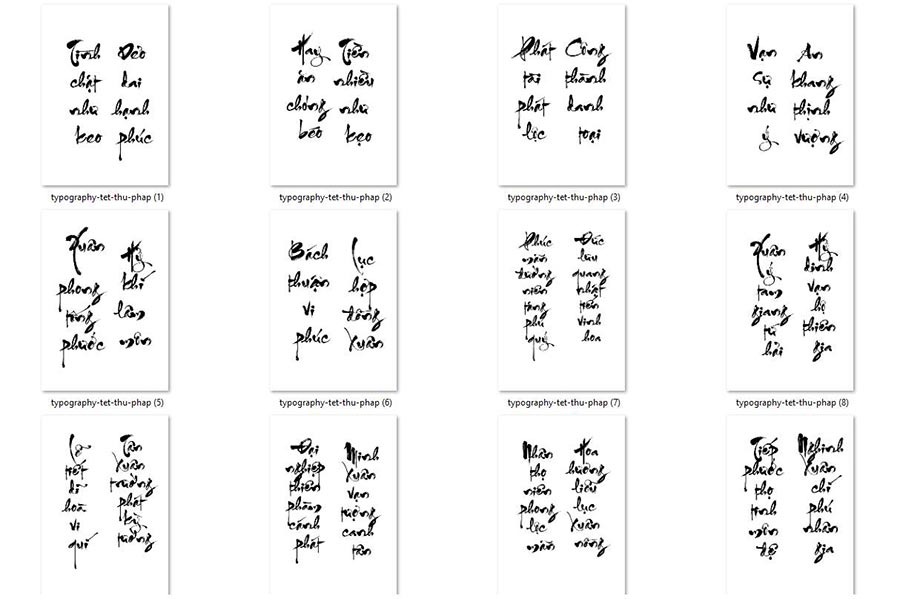 Tình chặt như keo
Dẻo dai hạnh phúc
Hay ăn chóng béo
Tiền nhiều như kẹo
Phát tài phát lộc
Công thành danh toại
Vạn Sự như ý
An khang thịnh vượng
typography-tet-thu-phap (1)
typography-tet-thu-phap (2)
typography-tet-thu-phap (3)
typography-tet-thu-phap (4)
Xuân phong tống phước
Hỷ khí lâm môn
Bách thuận vi phúc
Lục hợp đồng Xuân
Phúc mãn đường niên tăng phú quý
Đức lưu quang nhật tiến vinh hoa
Xuân ý tam giang tứ hải
Hỷ dinh vạn hộ thiên gia
typography-tet-thu-phap (5)
typography-tet-thu-phap (6)
typography-tet-thu-phap (7)
typography-tet-thu-phap (8)
tiết dĩ hoà vi quí
Tân Xuân trường phát kỳ tường
Đại nghiệp thiên phàm cánh phát
Minh Xuân vạn tượng canh tân
Nhân thọ niên phong lộc mãn
Hoa hương liễu lục Xuân nồng
Tiếp phước thọ môn đệ
Nghinh Xuân chí phú nhân gia